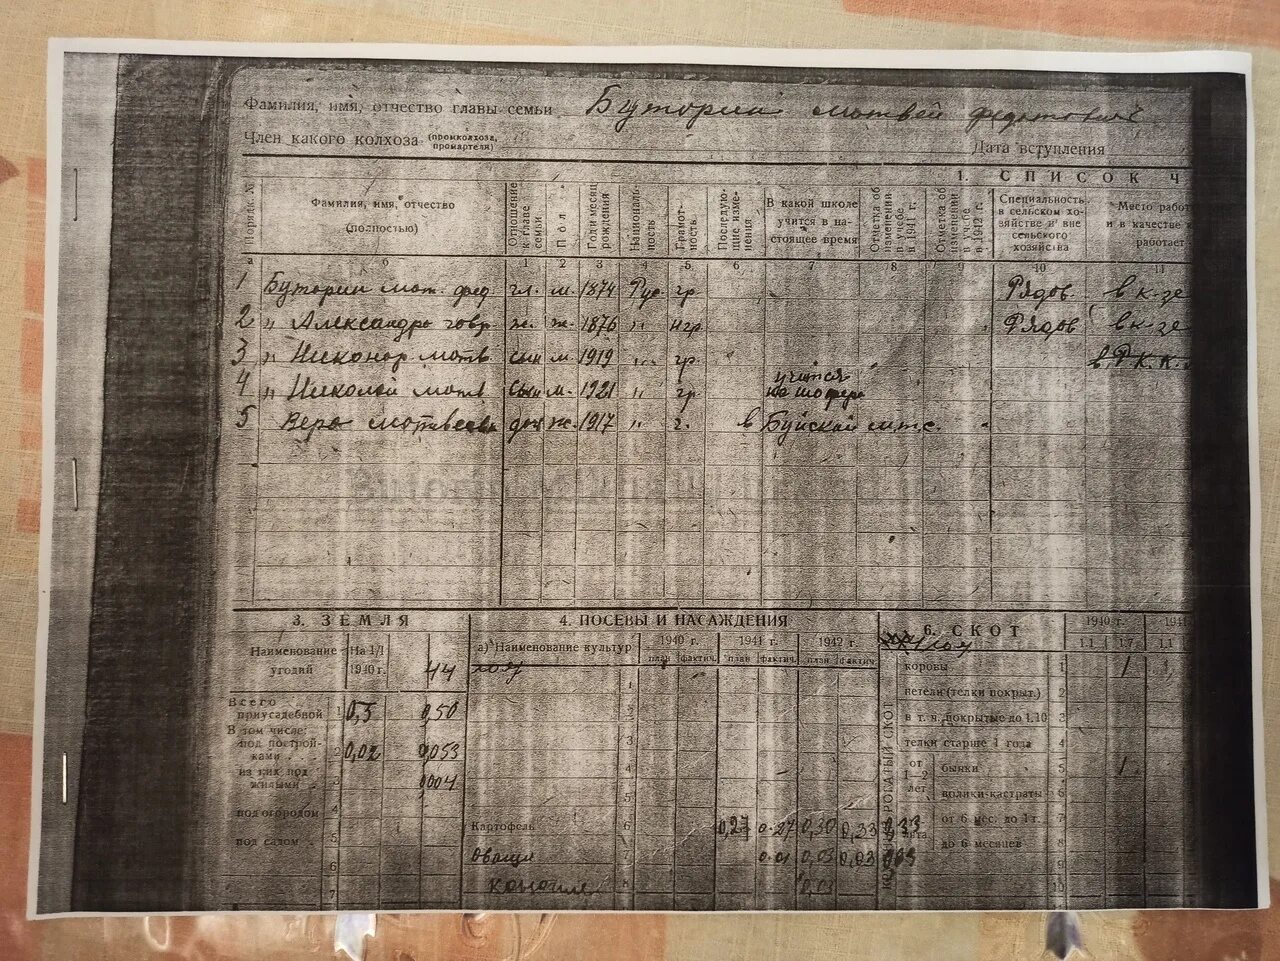 Фамилия, имя, отчество главы семьи Буторин Матвей Федотович
Член какого колхоза (промколхоза, промартели) Дата вступления
1. СПИСОК Ч
Порядк. № Фамилия, имя, отчество (полностью) Отношение к главе семьи Пол Год и месяц рождения Националь-ность Грамот-ность Последую-щие изме-нения В какой школе учится в на-стоящее время Отметка об изменении в учебе в 1941 г. Отметка об изменении в учебе в 1942 г. Специальность в сельском хо-зяйстве и вне сельского хозяйства Место работ и в качестве к работает
а б 1 2 3 4 5 6 7 8 9 10 11
1 Буторин Мат. Фед. гл. м. 1874 Рус гр. Рядов. в к-зе
2 " Александра ж. ж. 1876 " нгр. Рядов в к-зе
3 " Никонор Матв сын м. 1919 " гр. в Р.К.К.
4 " Николай Матв сын м. 1921 " гр. учится на шофера
5 Вера Матвеевна доч ж. 1917 " г. в Буйской мтс.
3. ЗЕМЛЯ
Наименование угодий На 1/I 1940 г. 44
Всего приусадебной 1 0,5 0,50
В том числе: под построй-ками 2 0,02 0,053
из них под жилыми 3 0,004
под огородом 4
под садом 5
6
7
4. ПОСЕВЫ И НАСАЖДЕНИЯ
а) Наименование культур 1940 г. 1941 г. 1942 г.
план фактич. план фактич. план фактич.
1
3
4
5
Картофель 6 0,27 0.27 0,30 0,33 0,33
Овощи 7 0.01 0,03 0,03
Конопля 8 0,01
6. СКОТ 1940 г. 1941
1.1 1.7 1.1
коровы 1 1 1
нетели (телки покрыт.) 2
в т. ч. покрытые до 1.10 3
телки старше 1 года 4
от 1—2 лет бычки 5 1
волики-кастраты 6
от 6 мес. до 1 г. 7
до 6 месяцев 8
9
10